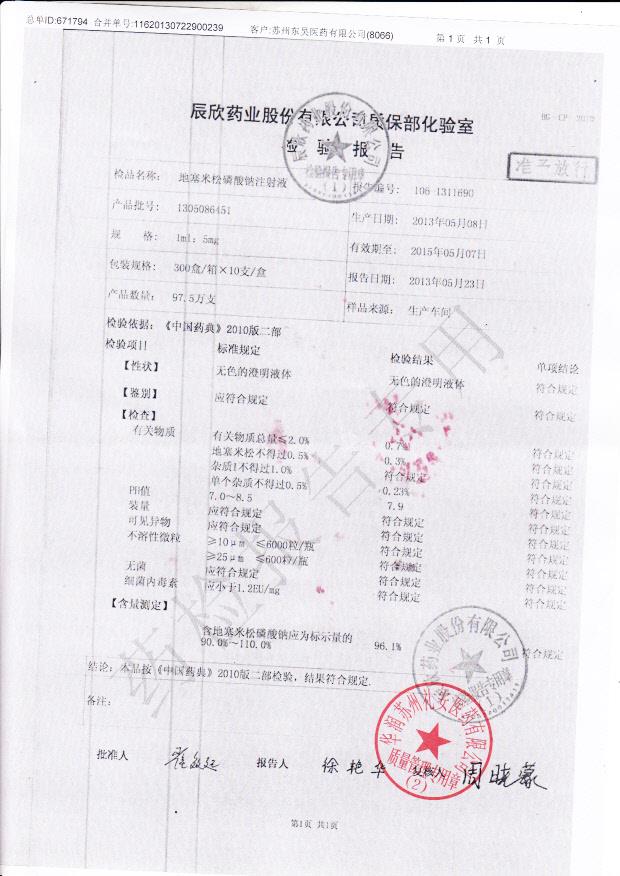 总单ID:671794 合并单号:11620130722900239 客户:苏州东吴医药有限公司(8066) 第1页 共1页
辰欣药业股份有限公司质保部化验室
检验报告
准予放行
检品名称: 地塞米松磷酸钠注射液 报告编号: 106-1311690
产品批号: 1305086451 生产日期: 2013年05月08日
规 格: 1ml:5mg 有效期至: 2015年05月07日
包装规格: 300盒/箱×10支/盒 报告日期: 2013年05月23日
产品数量: 97.5万支 样品来源: 生产车间
检验依据:《中国药典》2010版二部
检验项目 标准规定 检验结果 单项结论
【性状】 无色的澄明液体 无色的澄明液体 符合规定
【鉴别】 应符合规定 符合规定 符合规定
【检查】
有关物质 有关物质总量≤2.0% 0.7% 符合规定
地塞米松不得过0.5% 0.3% 符合规定
杂质I不得过1.0% 符合规定 符合规定
单个杂质不得过0.5% 0.23% 符合规定
PH值 7.0~8.5 7.9 符合规定
装量 应符合规定 符合规定 符合规定
可见异物 应符合规定 符合规定 符合规定
不溶性微粒 ≥10μm ≤6000粒/瓶 符合规定 符合规定
≥25μm ≤600粒/瓶 符合规定 符合规定
无菌 应符合规定 符合规定 符合规定
细菌内毒素 应小于1.2EU/mg 符合规定 符合规定
【含量测定】
含地塞米松磷酸钠应为标示量的
90.0%~110.0% 96.1% 符合规定
结论: 本品按《中国药典》2010版二部检验, 结果符合规定.
备注:
批准人 报告人 徐艳华 复核人 周晓蒙
华润苏州礼安医药有限公司
质量管理专用章
(2)
辰欣药业股份有限公司
检验报告专用章
(1)
药检报告专用
第1页 共1页